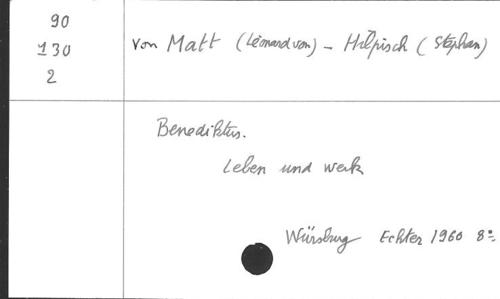 90
130
2
von Matt (Léonard von) - Hilpisch (Stephan)
Benediktus.
Leben und Werk
Würzburg Echter 1960 8º